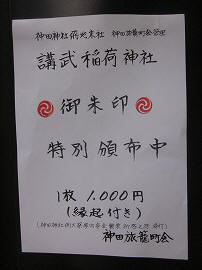 神田神社 摂末社 神田旅籠町会管理
講武稲荷神社
御朱印
特別頒布中
1枚 1.000円
(縁起付き)
神田旅籠町会